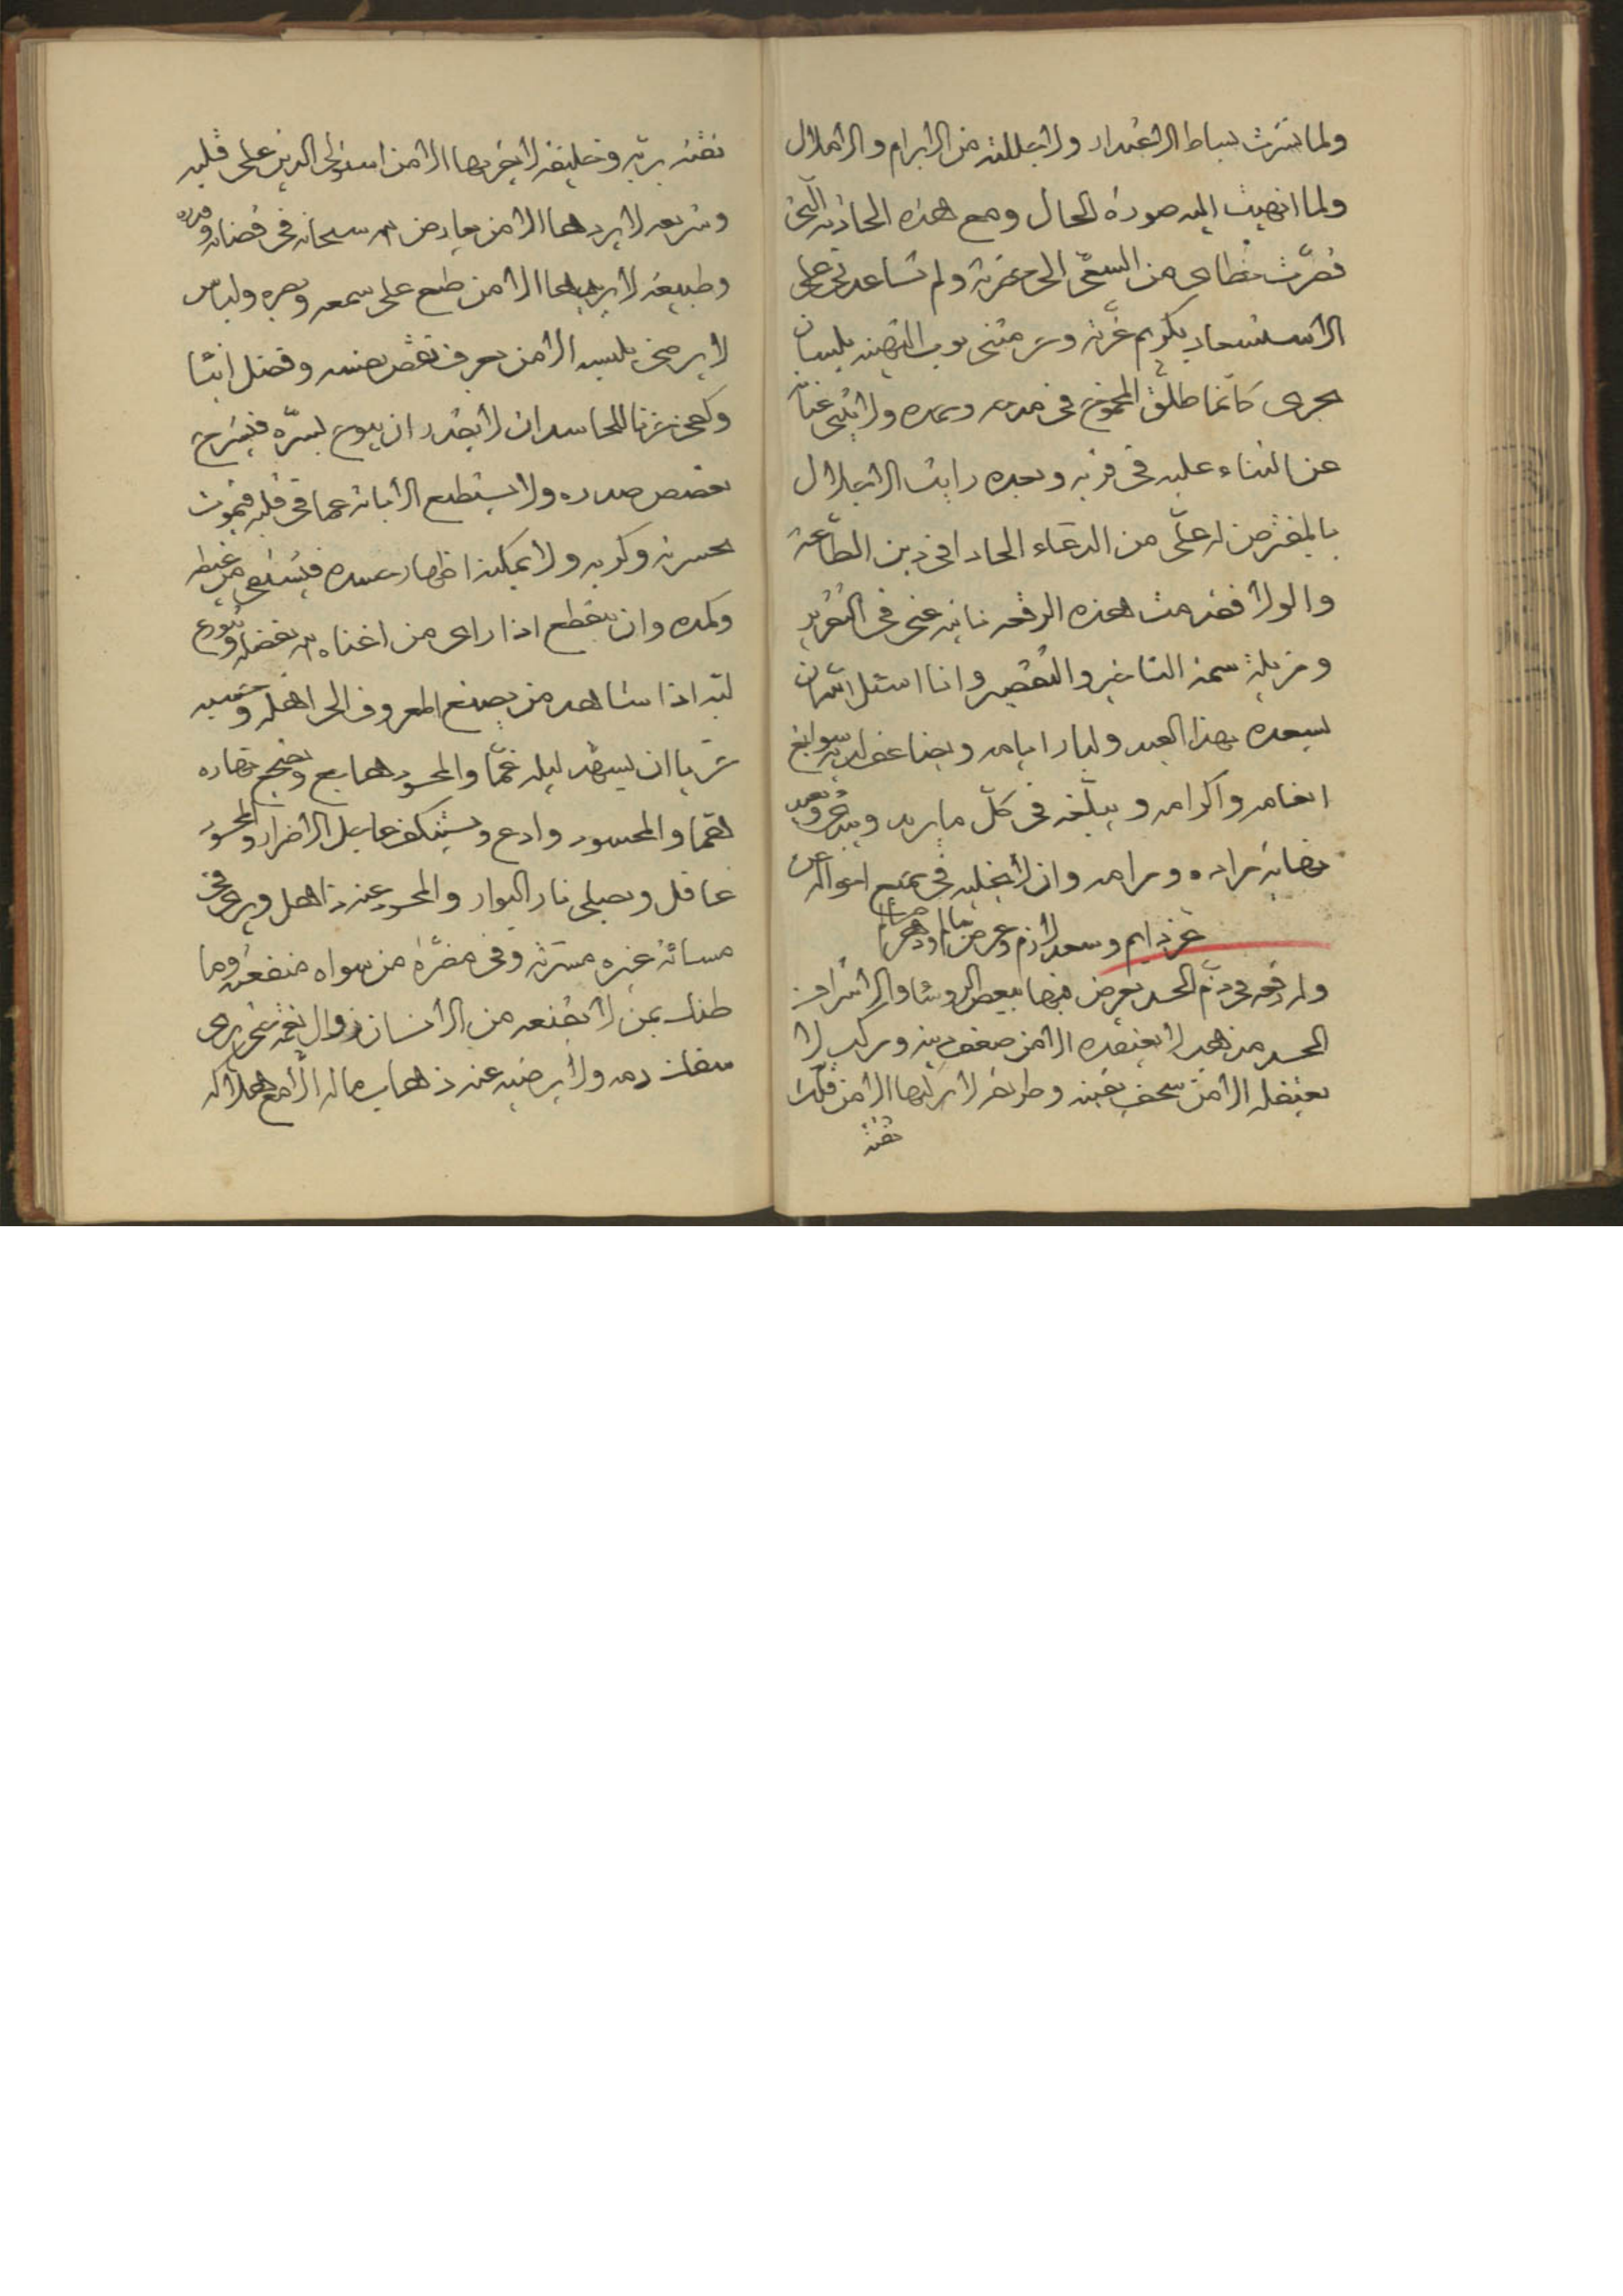 ولما نشرت بساط الاعتذار ولا تجللت من الابرام والاملال
ولما انهيت اليه صورة الحال ومع هذه الحادثه التى
قصرت خطاى من السعى الى حضرته ولم تساعدنى على
الاستسعاد بكريم غرته وعرفتنى نوب التهنيه بلسان
يجرى كانما طلق الجموح فى مدحه وحمده ولا يثنى عنانه
عن الثناء عليه فى قربه وبعده رايت الاخلال
بالمفترض له على من الدعاء الحادا فى دين الطاعة
والولا فقدمت هذه الرقعه نايبه عنى فى التقرير
ومزيلة سمة التاخير والتقصير وانا اسئل الله ان
يسعده بهذا العيد وليار ايامه ويضاعف لديه سوابغ
انعامه واكرامه ويبلغه فى كل ما يريد
نهاية مراده ومرامه وان لا يخليه فى جميع احواله من
عز دايم وسعد لازم
وله رقعه فى ذم الحسد يعرض فيها ببعض الروسا والاشراف
الحسد مذهب لا يعتقده الا من ضعف دينه ومركب لا
يعتقله الا من سخف يقينه وطريقه لا يركبها الا من قلت
ثقته
ثقته بربه وخليفه لا يغربها الا من استولى الدين على قلبه
وشريعه لا يردها الا من يعارض الله سبحانه فى قضائه وقدره
وطبيعة لا يرضاها الا من طبع على سمعه وبصره ولباس
لا يرضى بلبسه الا من يعرف نقص نفسه وفضل ابنا
وكفى حزنا للحاسد ان لا يقدر ان يبوح بسره فيشرح
غصص صدره ولا يستطيع الابانه عما فى قلبه فيموت
بحسرته وكربه ولا يمكنه اظهار حسده فيشتفى من غيظه
وكمده وان يتقطع اذا راى من اغناه الله بفضله
لبه اذا شاهد من يصنع المعروف الى اهله وحسبه
شرا ان يسهر ليله غما والمحسود هاجع ويضج نهاره
هما والمحسود وادع
غافل ويصلى نار البوار والمحسود عنه ذاهل ويرى فى
مسائة غيره مسرته وفى مضرة من سواه منفعته وما
ظنك بمن لا يقنعه من الانسان زوال نعمه حتى يرى
سفك دمه ولا يرضيه عنه ذهاب ماله الا مع هلاكه